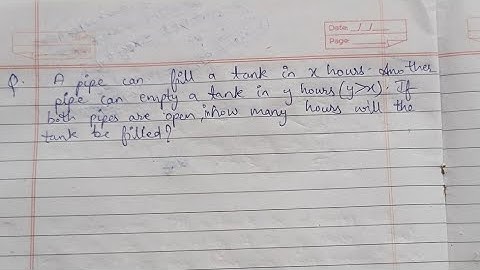 Date / /
Page
Q. A pipe can fill a tank in x hours. Another
pipe can empty a tank in y hours (y>x). If
both pipes are open, in how many hours will the
tank be filled?